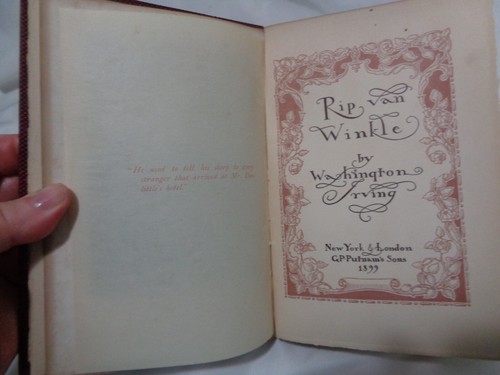 "He used to tell his story to every
stranger that arrived at Mr. Doo
little's hotel"
Rip van
Winkle
by
Washington
Irving
New York & London
G.P. Putnam's Sons
1899